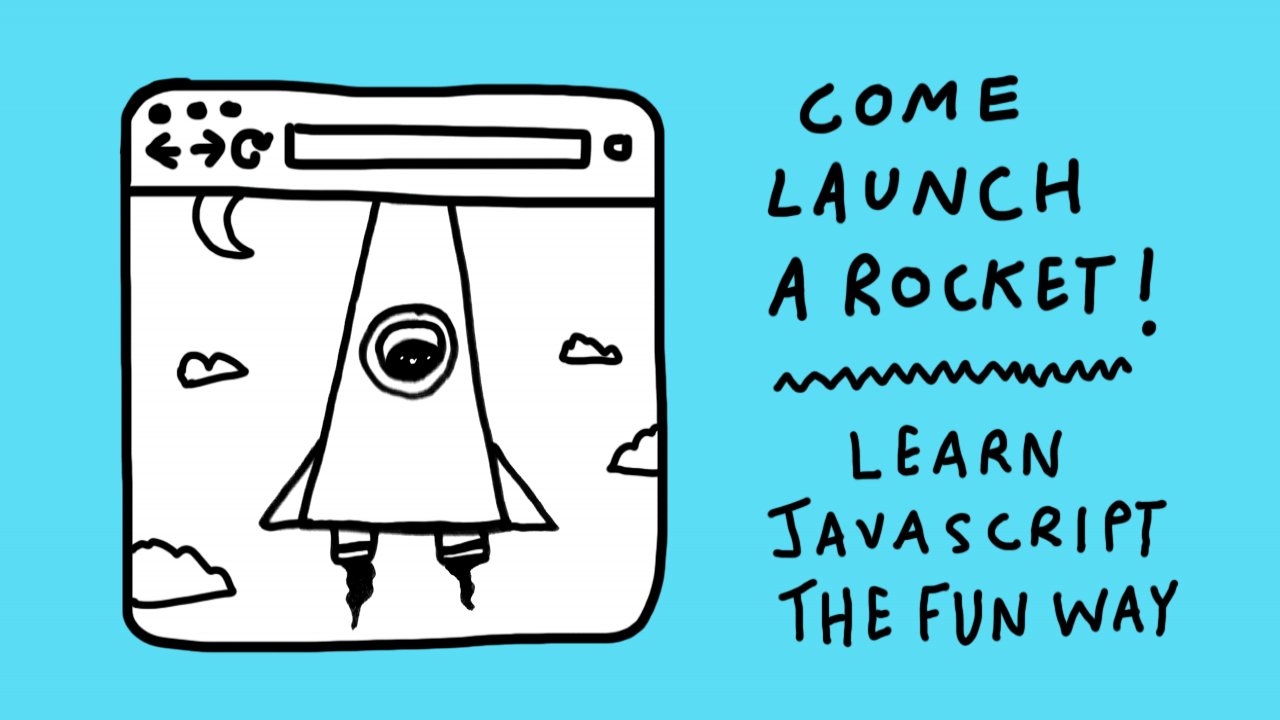 COME
LAUNCH
A ROCKET!
LEARN
JAVASCRIPT
THE FUN WAY